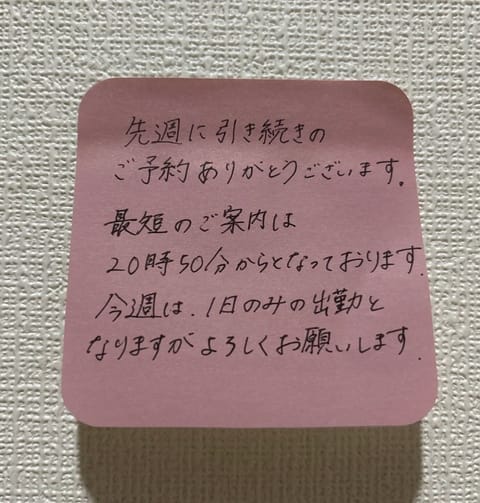 先週に引き続きの
ご予約ありがとうございます。
最短のご案内は
20時50分からとなっております.
今週は、1日のみの出勤と
なりますがよろしくお願いします.